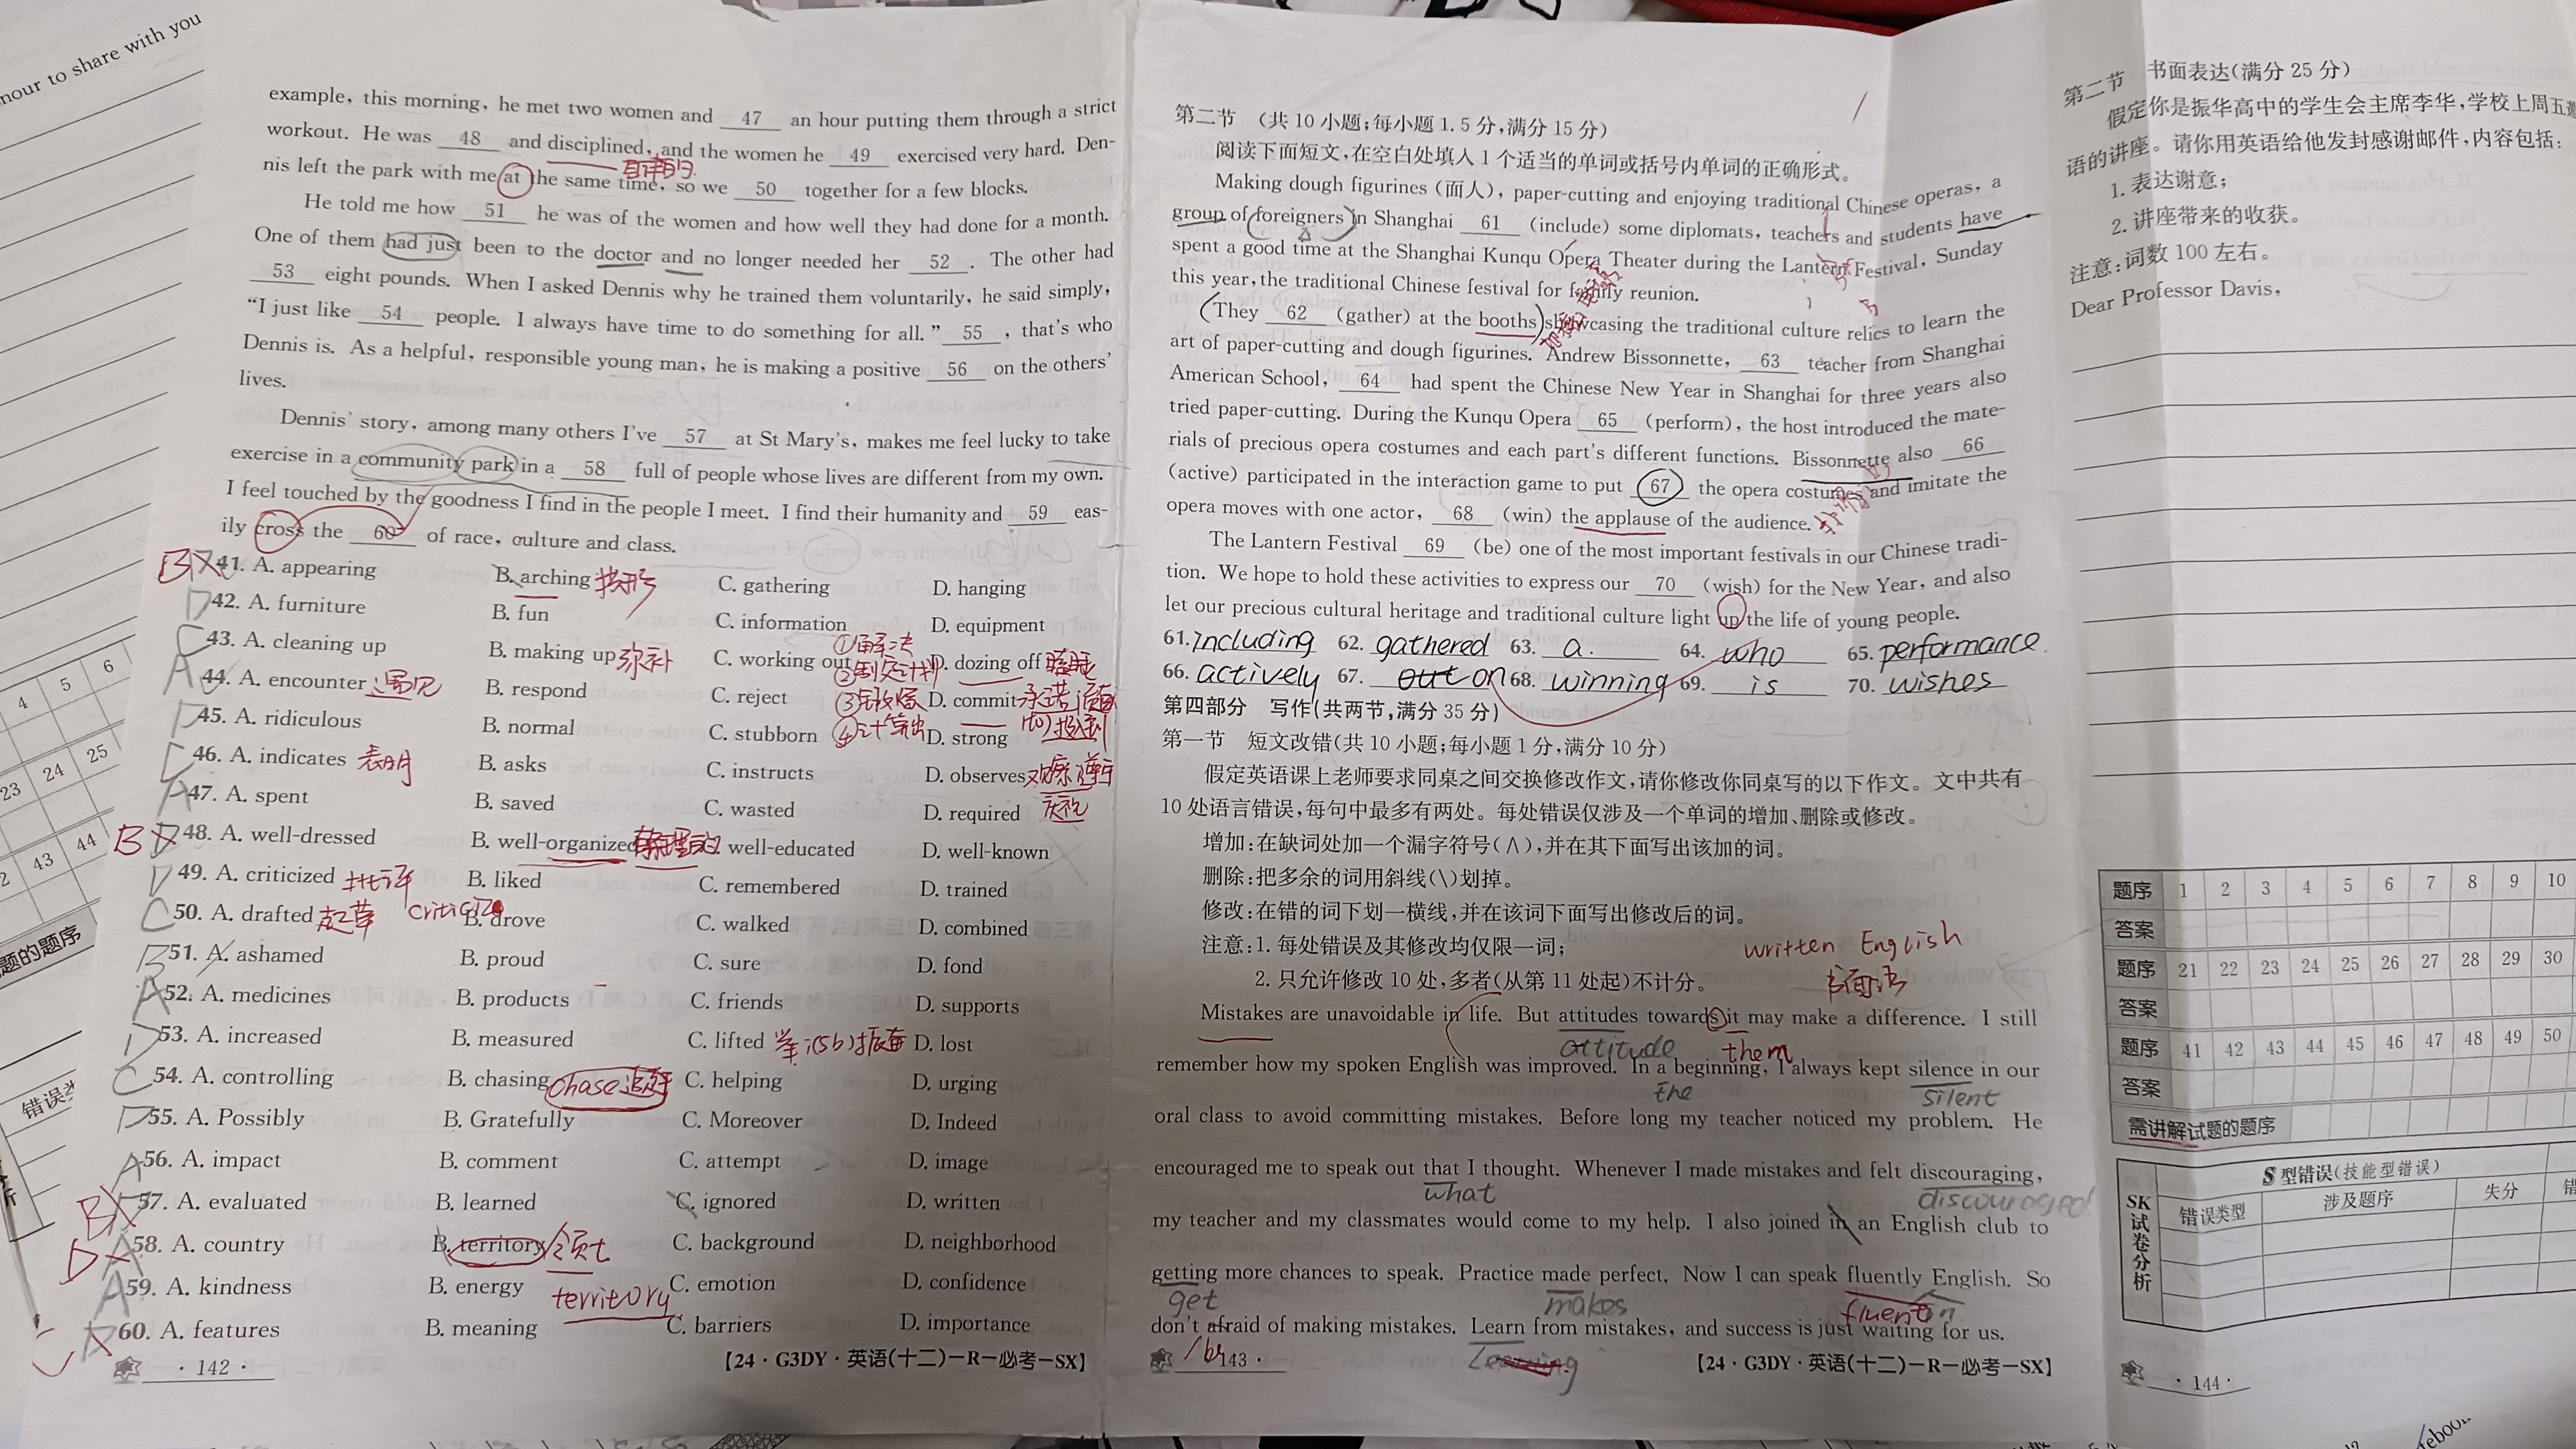 nour to share with you
example, this morning, he met two women and 47 an hour putting them through a strict
workout. He was 48 and disciplined, and the women he 49 exercised very hard. Den-
nis left the park with me at the same time, so we 50 together for a few blocks.
He told me how 51 he was of the women and how well they had done for a month.
One of them had just been to the doctor and no longer needed her 52 . The other had
53 eight pounds. When I asked Dennis why he trained them voluntarily, he said simply,
“I just like 54 people. I always have time to do something for all.” 55 , that's who
Dennis is. As a helpful, responsible young man, he is making a positive 56 on the others'
lives.
Dennis' story, among many others I've 57 at St Mary's, makes me feel lucky to take
exercise in a community park in a 58 full of people whose lives are different from my own.
I feel touched by the goodness I find in the people I meet. I find their humanity and 59 eas-
ily cross the 60 of race, culture and class.
B 41. A. appearing B. arching 拱形 C. gathering D. hanging
D 42. A. furniture B. fun C. information D. equipment
C 43. A. cleaning up B. making up 弥补 C. working out D. dozing off 瞌睡
A 44. A. encounter 遇见 B. respond C. reject D. commit 承诺
D 45. A. ridiculous B. normal C. stubborn ④计算出 D. strong
C 46. A. indicates 表明 B. asks C. instructs D. observes 观察 遵守
庆祝
A 47. A. spent B. saved C. wasted D. required
B 48. A. well-dressed B. well-organized 有条理的 C. well-educated D. well-known
D 49. A. criticized 批评 B. liked C. remembered D. trained
C 50. A. drafted 起草 B. drove C. walked D. combined
B 51. A. ashamed B. proud C. sure D. fond
A 52. A. medicines B. products C. friends D. supports
D 53. A. increased B. measured C. lifted 举;(sb)振奋 D. lost
C 54. A. controlling B. chasing chase 追逐 C. helping D. urging
D 55. A. Possibly B. Gratefully C. Moreover D. Indeed
A 56. A. impact B. comment C. attempt D. image
B 57. A. evaluated B. learned C. ignored D. written
D 58. A. country B. territory 领土 C. background D. neighborhood
A 59. A. kindness B. energy C. emotion D. confidence
territory
C 60. A. features B. meaning C. barriers D. importance
· 142 · 【24·G3DY·英语(十二)-R-必考-SX】
第二节 (共 10 小题;每小题 1.5 分,满分 15 分)
阅读下面短文,在空白处填入 1 个适当的单词或括号内单词的正确形式。
Making dough figurines (面人), paper-cutting and enjoying traditional Chinese operas, a
group of foreigners in Shanghai 61 (include) some diplomats, teachers and students have
spent a good time at the Shanghai Kunqu Opera Theater during the Lantern Festival, Sunday
this year, the traditional Chinese festival for family reunion.
They 62 (gather) at the booths showcasing the traditional culture relics to learn the
art of paper-cutting and dough figurines. Andrew Bissonnette, 63 teacher from Shanghai
American School, 64 had spent the Chinese New Year in Shanghai for three years also
tried paper-cutting. During the Kunqu Opera 65 (perform), the host introduced the mate-
rials of precious opera costumes and each part's different functions. Bissonnette also 66
(active) participated in the interaction game to put 67 the opera costumes and imitate the
opera moves with one actor, 68 (win) the applause of the audience.
The Lantern Festival 69 (be) one of the most important festivals in our Chinese tradi-
tion. We hope to hold these activities to express our 70 (wish) for the New Year, and also
let our precious cultural heritage and traditional culture light up the life of young people.
61. including 62. gathered 63. a. 64. who 65. performance.
66. actively 67. on 68. winning 69. is 70. wishes
第四部分 写作(共两节,满分 35 分)
第一节 短文改错(共 10 小题;每小题 1 分,满分 10 分)
假定英语课上老师要求同桌之间交换修改作文,请你修改你同桌写的以下作文。文中共有
10 处语言错误,每句中最多有两处。每处错误仅涉及一个单词的增加、删除或修改。
增加:在缺词处加一个漏字符号(∧),并在其下面写出该加的词。
删除:把多余的词用斜线(\)划掉。
修改:在错的词下划一横线,并在该词下面写出修改后的词。
注意:1. 每处错误及其修改均仅限一词;
written English
2. 只允许修改 10 处,多者(从第 11 处起)不计分。
书面语
Mistakes are unavoidable in life. But attitudes towards it may make a difference. I still
attitude them
remember how my spoken English was improved. In a beginning, I always kept silence in our
the silent
oral class to avoid committing mistakes. Before long my teacher noticed my problem. He
encouraged me to speak out that I thought. Whenever I made mistakes and felt discouraging,
what discouraged
my teacher and my classmates would come to my help. I also joined in an English club to
getting more chances to speak. Practice made perfect. Now I can speak fluently English. So
get makes fluent
don't afraid of making mistakes. Learn from mistakes, and success is just waiting for us.
be
· 143 · 【24·G3DY·英语(十二)-R-必考-SX】
第二节 书面表达(满分 25 分)
假定你是振华高中的学生会主席李华,学校上周五邀
语的讲座。请你用英语给他发封感谢邮件,内容包括:
1. 表达谢意;
2. 讲座带来的收获。
注意:词数 100 左右。
Dear Professor Davis,
题序 1 2 3 4 5 6 7 8 9 10
答案
题序 21 22 23 24 25 26 27 28 29 30
答案
题序 41 42 43 44 45 46 47 48 49 50
答案
需讲解试题的题序
SK试卷分析
S 型错误(技能型错误)
错误类型 涉及题序 失分 错
· 144 ·
4 5 6
23 24 25
2 43 44
题的题序
错误类